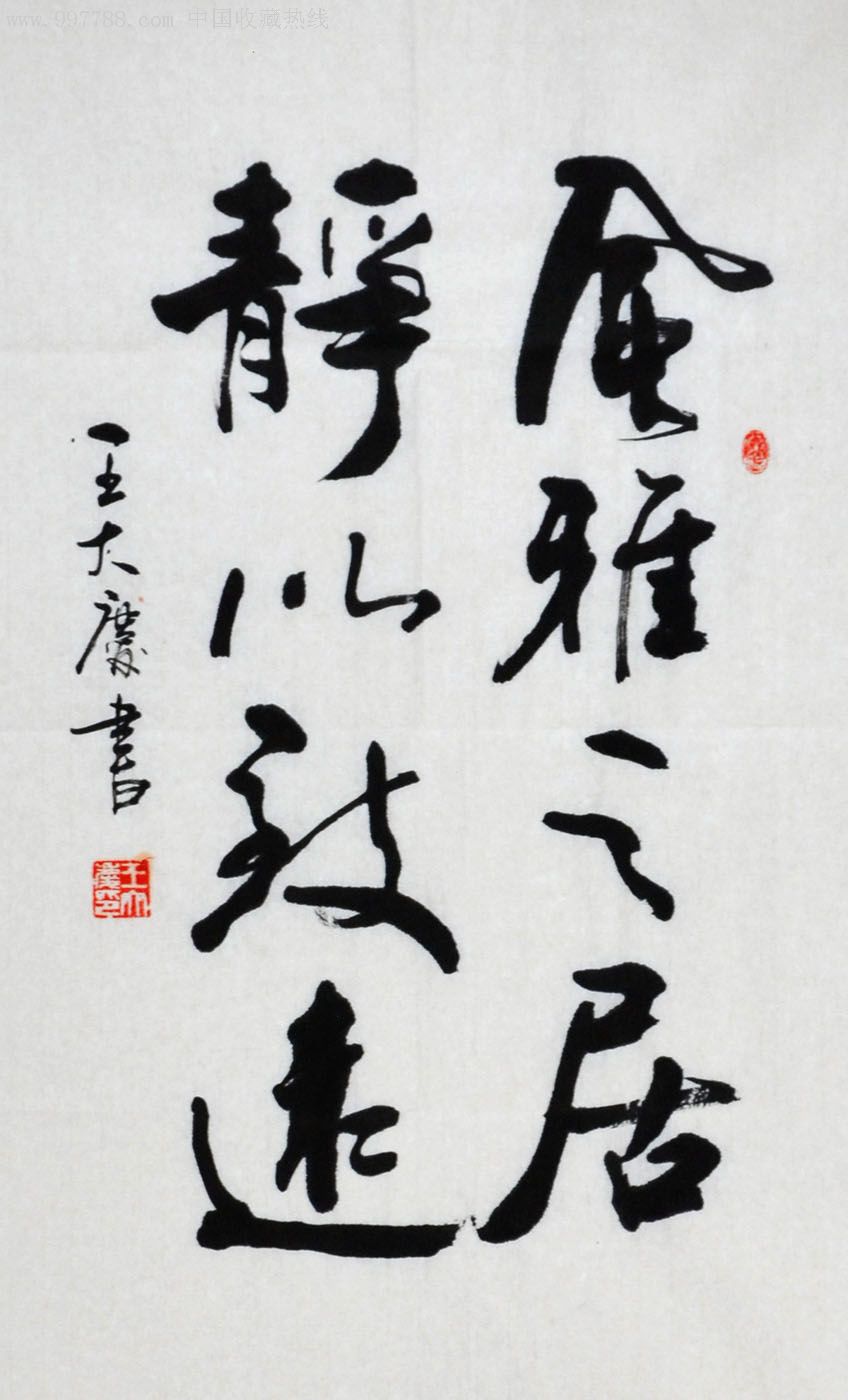 www.997788.com 中国收藏热线
風雅之居
靜以致遠
王大慶書
王大慶印